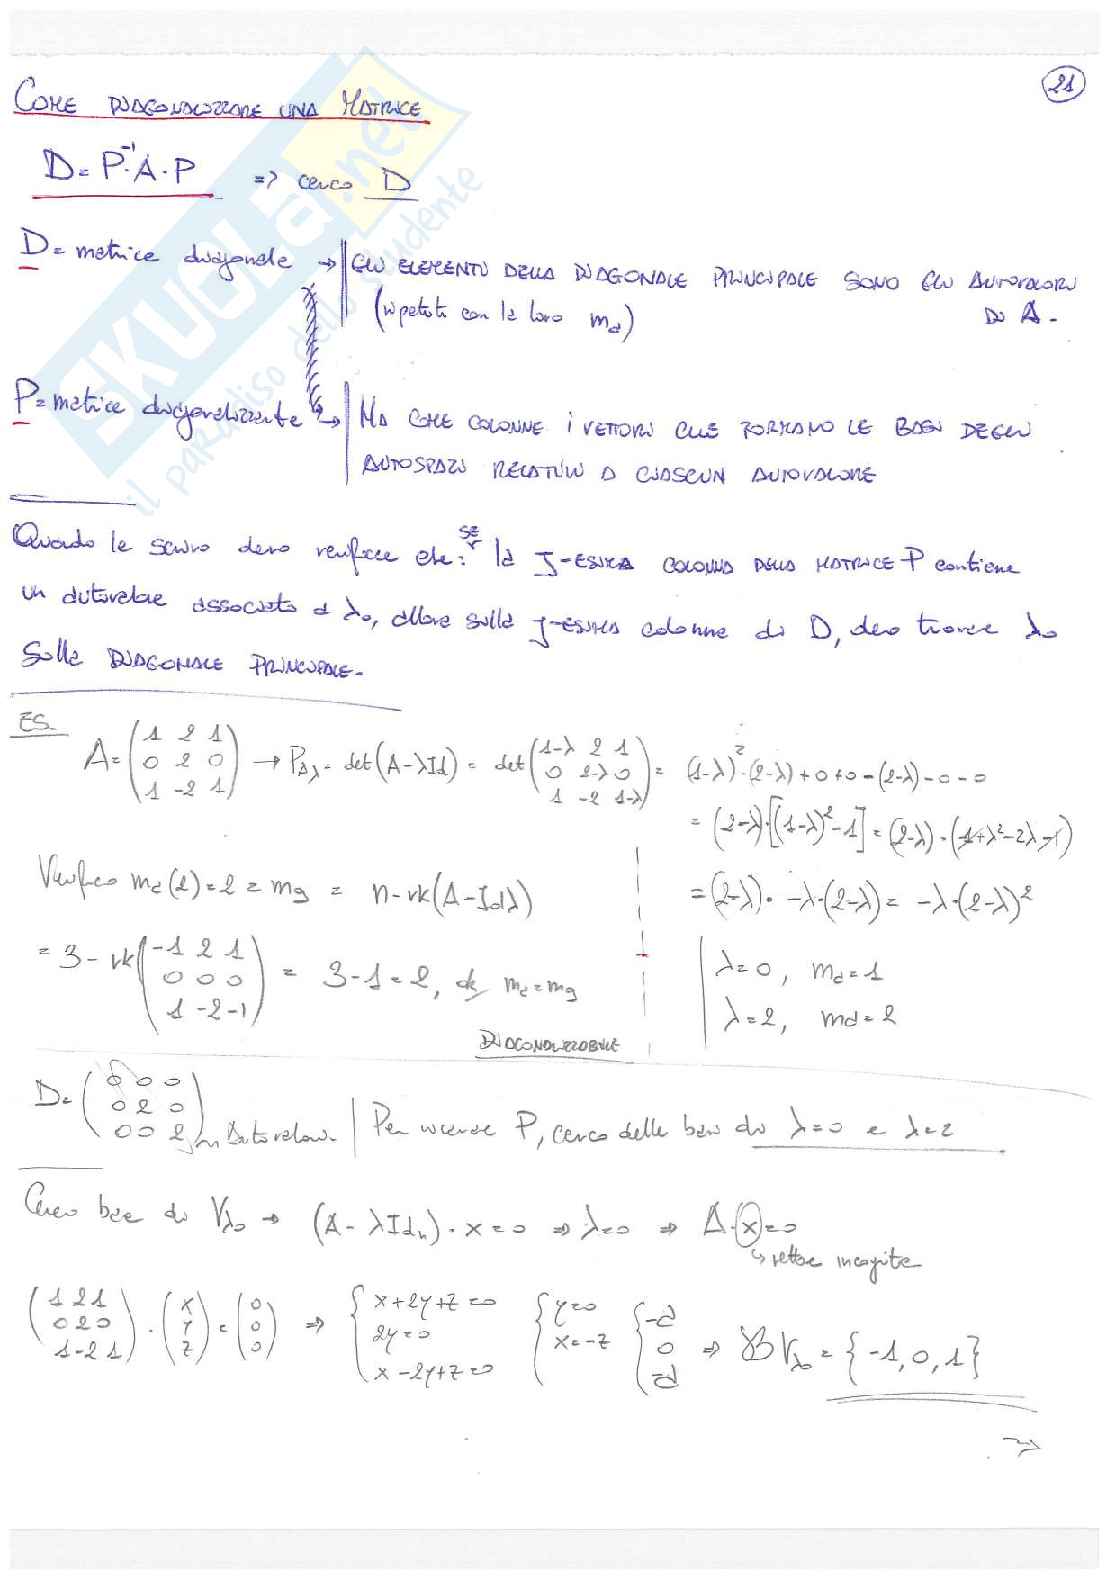 21
COME DIAGONALIZZARE UNA MATRICE
D = P⁻¹·A·P => cerco D
D = matrice diagonale → GLI ELEMENTI DELLA DIAGONALE PRINCIPALE SONO GLI AUTOVALORI
(ripetuti con la loro ma) DI A.
P = matrice diagonalizzante → HA COME COLONNE I VETTORI CHE FORMANO LE BASI DEGLI
AUTOSPAZI RELATIVI A CIASCUN AUTOVALORE
Quando le scrivo devo verificare che: SE la J-ESIMA COLONNA DELLA MATRICE P contiene
un autovalore associato a λ₀, allora sulla J-ESIMA colonna di D, devo trovare λ₀
sulla DIAGONALE PRINCIPALE.
ES.
A = (1 2 1 / 0 2 0 / 1 -2 1) → P_Aλ = det(A-λId) = det(1-λ 2 1 / 0 2-λ 0 / 1 -2 1-λ) = (1-λ)²·(2-λ)+0+0-(2-λ)-0-0
= (2-λ)·[(1-λ)²-1] = (2-λ)·(1+λ²-2λ-1)
= (2-λ)· -λ·(2-λ) = -λ·(2-λ)²
λ=0, ma=1
λ=2, ma=2
Verifico ma(2)=2=mg = n-rk(A-Idλ)
= 3-rk(-1 2 1 / 0 0 0 / 1 -2 -1) = 3-1=2, ok ma=mg
DIAGONALIZZABILE
D = (0 0 0 / 0 2 0 / 0 0 2) → Autovalori | Per scrivere P, cerco delle basi di λ=0 e λ=2
Cerco base di Vλ₀ → (A-λIdn)·x=0 => λ=0 => A·x=0
↳ vettore incognite
(1 2 1 / 0 2 0 / 1 -2 1)·(x / y / z) = (0 / 0 / 0) => {x+2y+z=0 / 2y=0 / x-2y+z=0 {y=0 / x=-z {-a / 0 / =a => BVλ₀ = {-1,0,1}
→
SKUOLA.net
il paradiso dello studente